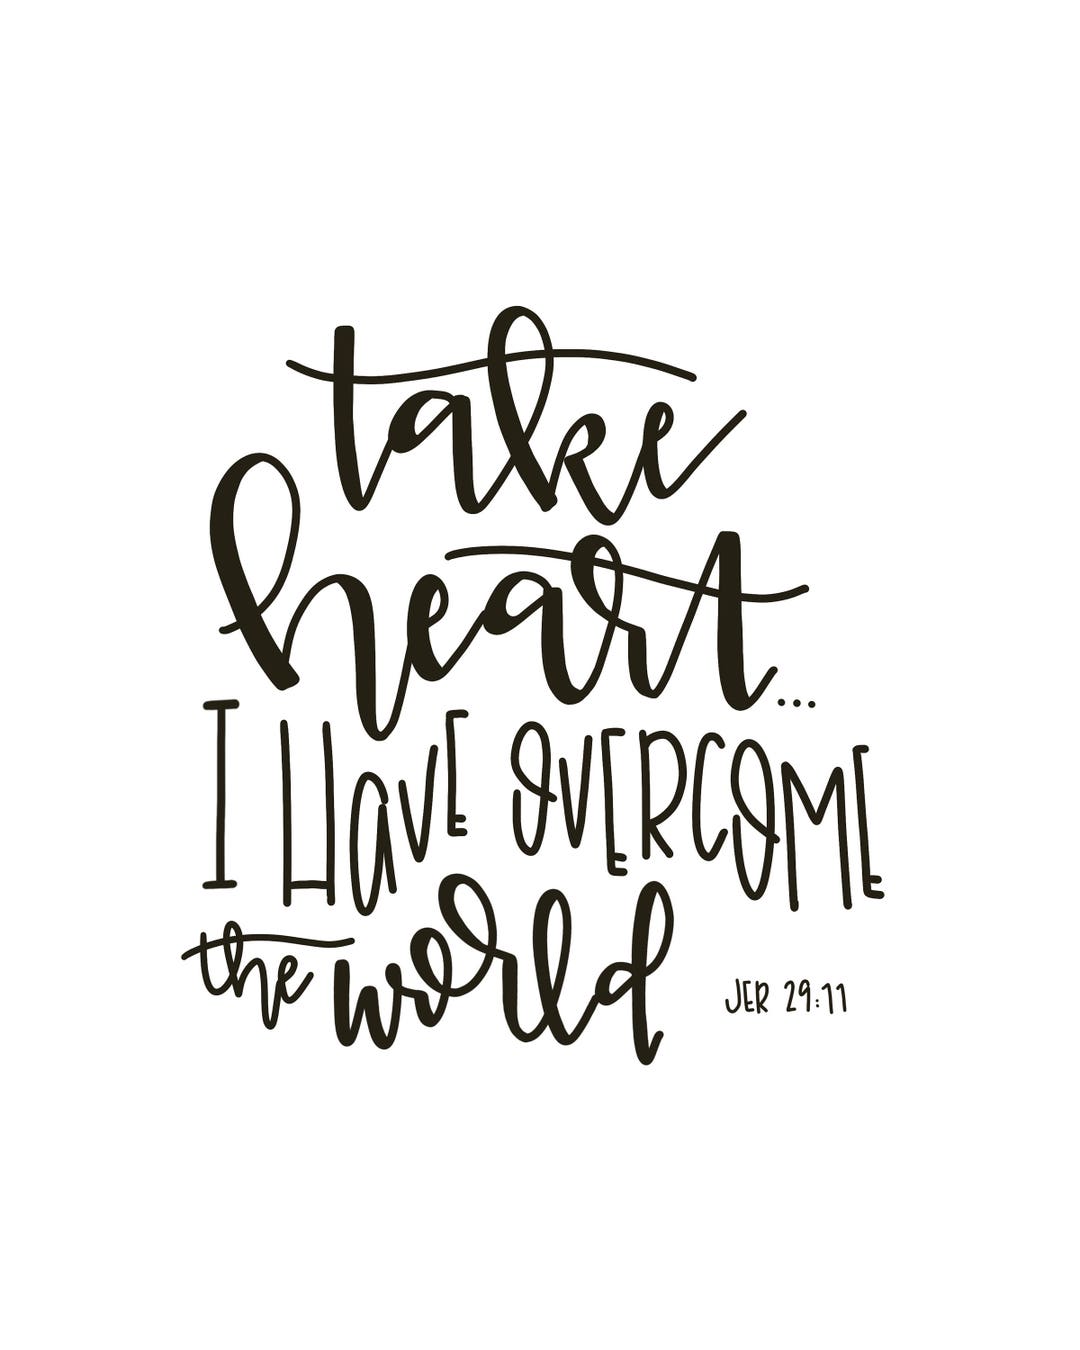 take
heart...
I HaVE OVERCOME
the world
JER 29:11